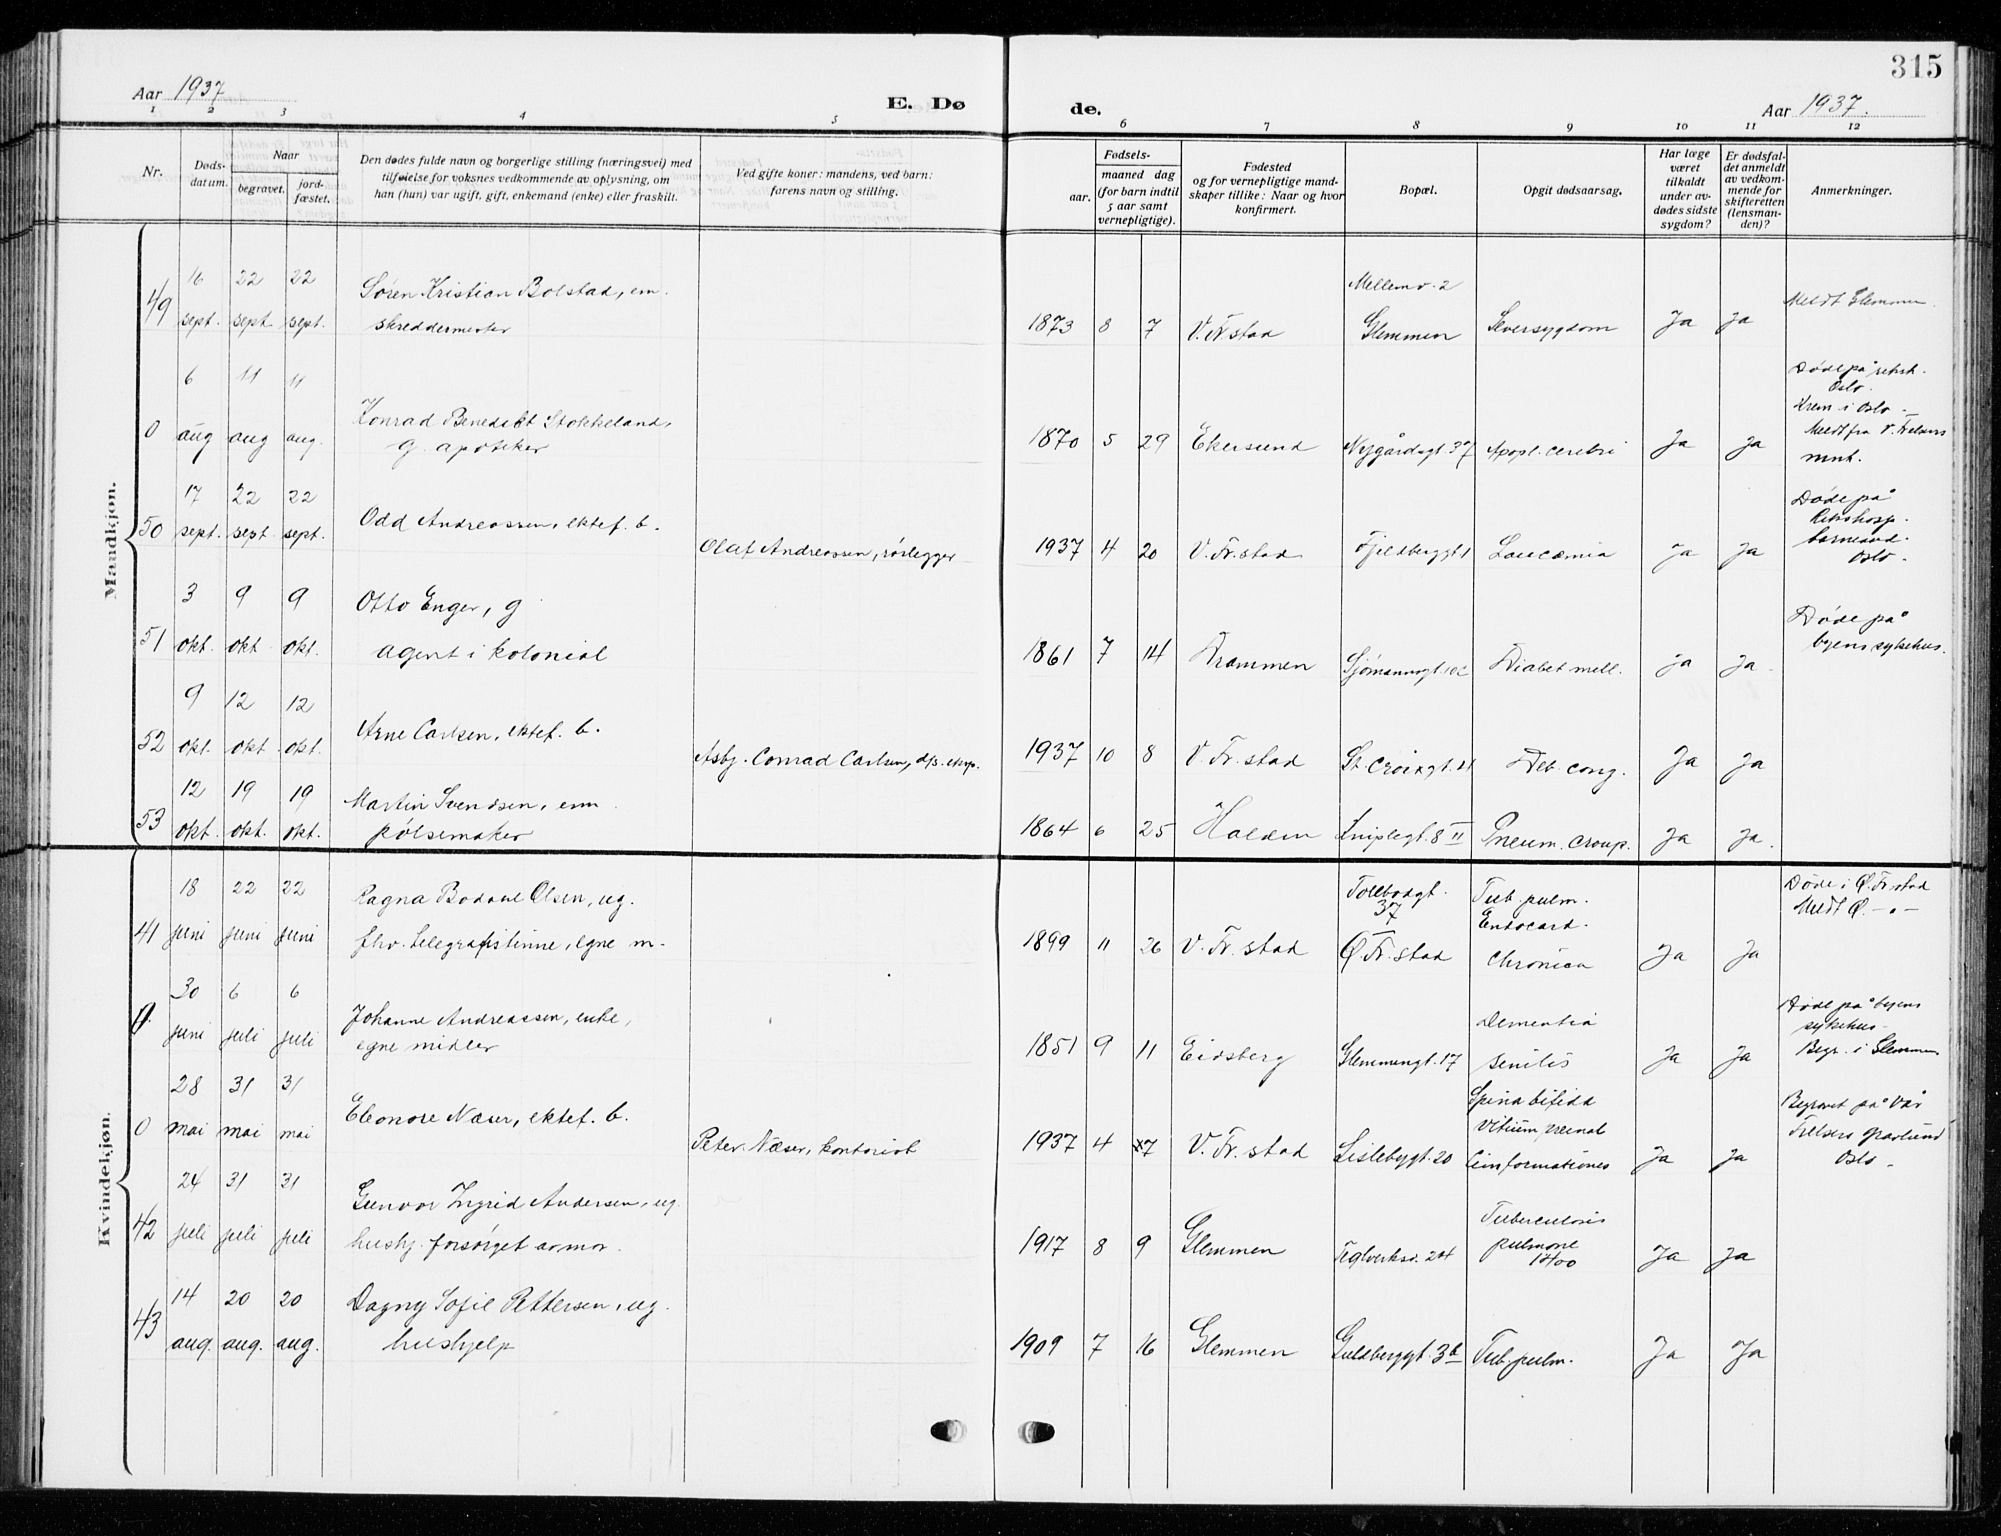 315
Aar 1937
E. Døde.
Aar 1937.
1 2 3 4 5 6 7 8 9 10 11 12
Nr.
Døds-
datum.
Naar
begravet.
jord-
fæstet.
Den dødes fulde navn og borgerlige stilling (næringsvei) med
tilføielse for voksnes vedkommende av oplysning, om
han (hun) var ugift, gift, enkemand (enke) eller fraskilt.
Ved gifte koner: mandens, ved barn:
farens navn og stilling.
Fødsels-
aar.
maaned dag
(for barn indtil
5 aar samt
vernepligtige).
Fødested
og for vernepligtige mand-
skaper tillike: Naar og hvor
konfirmert.
Bopæl.
Opgit dødsaarsag.
Har læge
været
tilkaldt
under av-
dødes sidste
sygdom?
Er dødsfal-
det anmeldt
av vedkom-
mende for
skifteretten
(lensman-
den)?
Anmerkninger.
Maadkjøn.
49 16 sept. 22 sept 22 sept. Søren Kristian Bolstad, em.
skreddermester
1873 8 7 V. Fr.stad Mellemv. 2
Glemmen Leversygdom Ja Ja Meldt Glemmen.
0 6 aug 11 aug 11 aug. Konrad Benedikt Stokkeland,
g. apoteker
1870 5 29 Ekersund Nygårdsgt. 37 Apopl. cerebri Ja Ja Døde på
Oslo.
Krem. i Oslo
Meldt fra V. Frelsers
mnh.
50 17 sept. 22 sept 22 sept. Odd Andreassen, ektef. b.
Olaf Andreassen, rørlegger
1937 4 20 V. Fr. stad Fjeldberggt 1 Leucæmia Ja Ja Døde på
Rikshosp.
barneavd.
Oslo.
51 3 okt. 9 okt 9 okt. Otto Enger, g
agent i kolonial
1861 7 14 Drammen Sjømannsgt. Diabet mell. Ja Ja. Døde på
byens sykehus.
52 9 okt. 12 okt. 12 okt. Arne Carlsen, ektef. b.
Asbj. Conrad Carlsen, d/s. eksp.
1937 10 8 V. Fr. stad St. Croixgt. 21 Deb. cong. Ja Ja
53 12 okt. 19 okt. 19 okt. Martin Svendsen, em
pølsemaker
1864 6 25 Halden Snipegt. 8 II Pneum. croup. Ja Ja.
Kvindekjøn.
41 18 juni 22 juni 22 juni Ragna Bodahl Olsen, ug.
fhv. telegrafistinne, egne m-
1899 11 26 V. Fr. stad Tollbodgt.
37
Ø. Fr. stad Tub. pulm.
Endocard.
chronica Ja Ja Døde i Ø. Fr stad
Meldt Ø. - " -
0. 30 juni 6 juli 6 juli Johanne Andreassen, enke,
egne midler
1851 9 11 Eidsberg Glemmengt. 17 Dementia
senilis Ja Ja Døde på byens
sykehus.
Begr. i Glemmen
0 28 mai 31 mai 31 mai Eleonore Næser, ektef. b.
Peter Næser, kontorist
1937 4 7 V. Fr. stad Lislebygt. 20 Spina bifida
Vitium Ja Ja Begravet på Vår
Frelsers gravlund
Oslo
42 24 juli 31 juli 31 juli Gunvor Ingrid Andersen, ug.
hushj. forsørget av mor.
1917 8 9 Glemmen Teglverksv. 24 Tuberculosis
pulmone Ja Ja
43 14 aug. 20 aug. 20 aug. Dagny Sofie Pettersen, ug.
hushjelp
1909 7 16 Glemmen Guldberggt. 3b Tub. pulm. Ja Ja